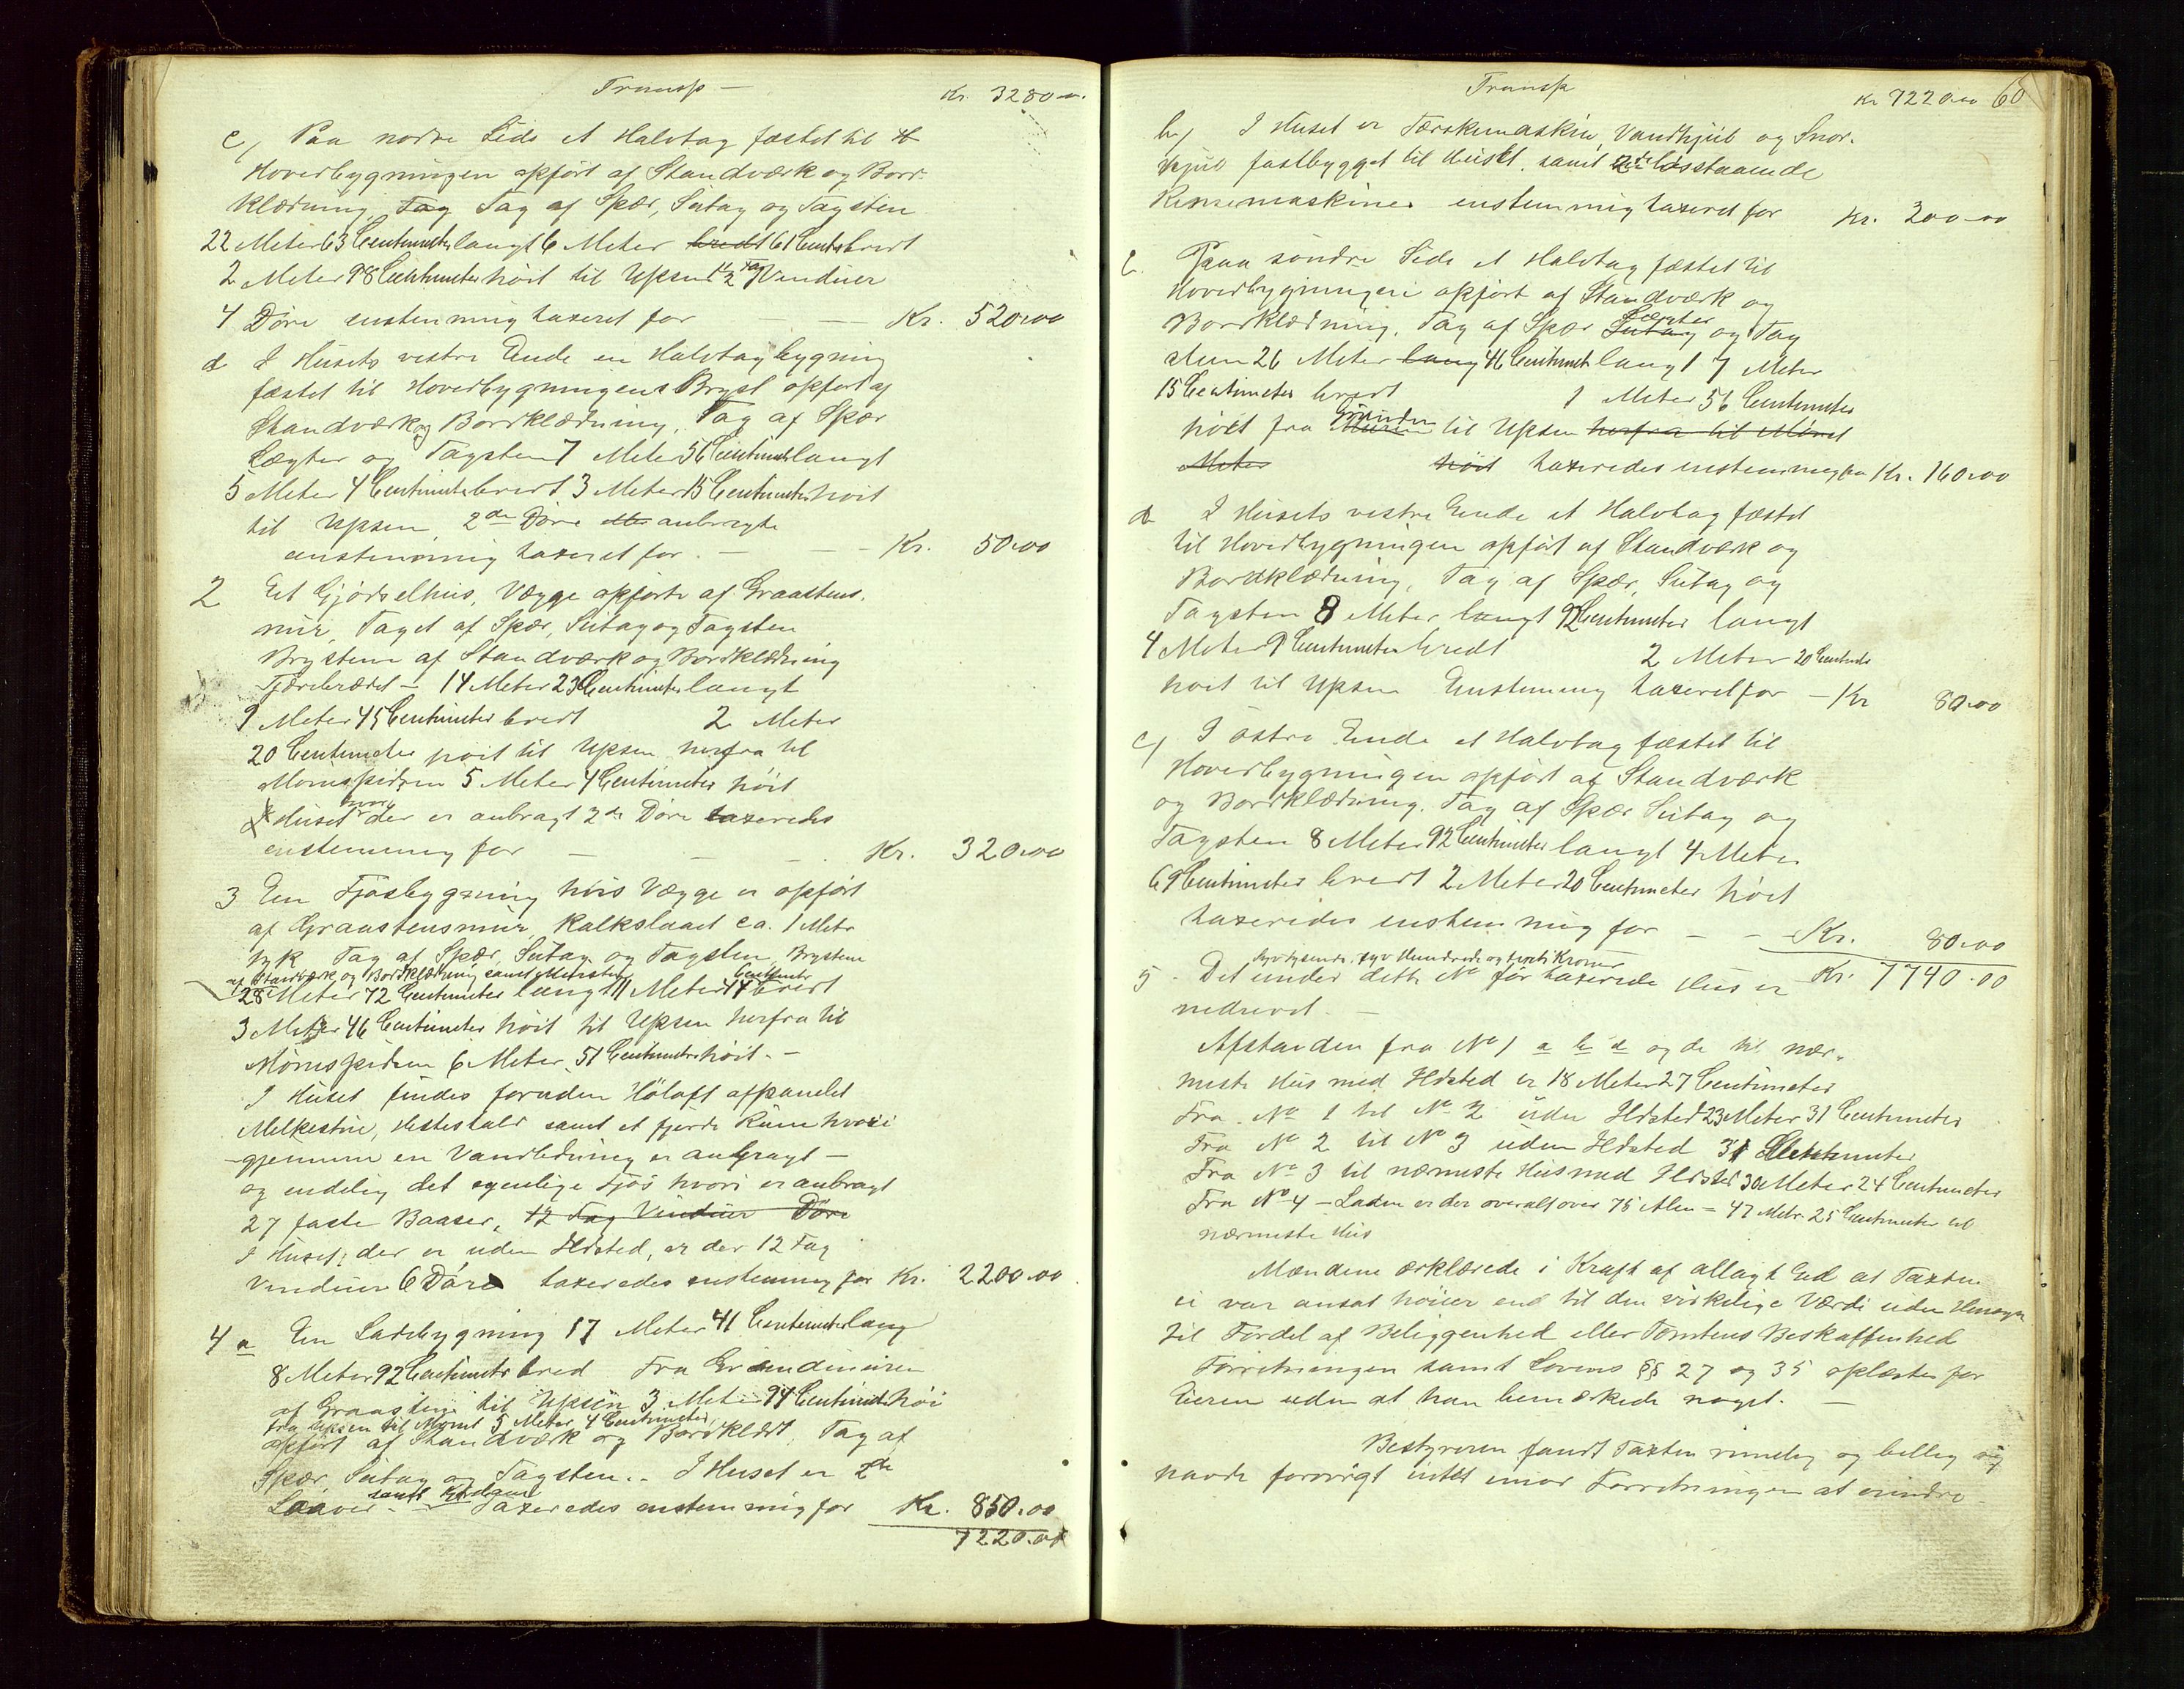 Transp —
Kr. 3280 "
c, Paa nordre Side et Halvtag fæstet til
Hovedbygningen opført af Standværk og Bord-
klædning, Tag Tag af Spær, Sutag og Tagsten
22 Meter 63 Centimeter langt 6 Meter bredt 61 Centm bredt
2 Meter 98 Centimeter høit til Upsen 12 Fag Vinduer
4 Døre enstemmig taxeret for — Kr. 520.00
d I Husets vestre Ende en Halvtagbygning
fæstet til Hovedbygningens Bryst opført af
Standværk og Bordklædning, Tag af Spær
Lægter og Tagsten 7 Meter 56 Centimeter langt
5 Meter 4 Centimeter bredt 3 Meter 15 Centimeter høit
til Upsen, 2de Døre anbragte
enstemmig taxeret for. — Kr. 50.00
2 Et Gjødselhus, Vægge opførte af Graastens-
mur, Taget af Spær, Sutag og Tagsten
Brystene af Standværk og Bordklædning
Tjærebrædt — 14 Meter 23 Centimeter langt
9 Meter 45 Centimeter bredt 2 Meter
20 Centimeter høit til Upsen herfra til
Mønespidsen 5 Meter 4 Centimeter høit
Huset hvor der er anbragt 2de Døre taxeredes
enstemmig for — — — Kr. 320.00
3 En Fjøsbygning hvis Vægge er opført
af Graastensmur, Kalkslaaet ca. 1 Meter
tyk Tag af Spær, Sutag og Tagsten, Brystene
af Standværk og Bordklædning samt Mursten
28 Meter 72 Centimeter langt 11 Meter 14 Centimeter bredt
3 Meter 46 Centimeter høit til Upsen herfra til
Mønespidsen 6 Meter 51 Centimeter høit. —
I Huset findes foruden Høloft afpanelet
Melkestue, Hestestald samt et fjerde Rum hvori
gjennem en Vandledning er anbragt —
og endelig det egenlige Fjøs hvori er anbragt
27 faste Baaser, 12 Fag Vinduer Døre
I Huset, der er uden Ildsted, er der 12 Fag
Vinduer 6 Døre taxeredes enstemmig for Kr. 2200.00
4 a En Ladebygning 17 Meter 41 Centimeter lang
8 Meter 92 Centimeter bred Fra Grundmuren
af Graasten til Upsen 3 Meter 94 Centimeter høi
fra Upsen til Mønet 5 Meter 4 Centimeter,
opført af Standværk og Bordklædt, Tag af
Spær, Sutag og Tagsten. - I Huset er 2de
Laaver — samt Taxeredes enstemmig for Kr. 850.00
7220.00
Transp
Kr 7220.00 60
b, I Huset er Tærskemaskin, Vandhjul og Snor-
hjul fastbygget til Huset. samt 2de løsstaaende
Rensemaskiner enstemmig taxeret for Kr. 200.00
c. Paa søndre Side et Halvtag fæstet til
Hovedbygningen opført af Standværk og
Bordklædning, Tag af Spær Sutag Lægter og Tag
sten 26 Meter lang 46 Centimeter langt 7 Meter
15 Centimeter bredt 1 Meter 56 Centimeter
høit fra Muren Grunden til Upsen herfra til Mønet
Meter høit taxeredes enstemmig for Kr. 160.00
d I Husets vestre Ende et Halvtag fæstet
til Hovedbygningen opført af Standværk og
Bordklædning, Tag af Spær, Sutag og
Tagsten 8 Meter langt 92 Centimeter langt
4 Meter 9 Centimeter bredt 2 Meter 20 Centimeter
høit til Upsen Enstemmig taxeret for — Kr 80.00
e, I østre Ende et Halvtag fæstet til
Hovedbygningen opført af Standværk
og Bordklædning, Tag af Spær Sutag og
Tagsten 8 Meter 92 Centimeter langt 4 Meter
69 Centimeter bredt 2 Meter 20 Centimeter høit
taxeredes enstemmig for — — Kr. 80.00
Syvtusende, syv Hundrede og Kroner
5 Det under dette No før taxerede Hus er Kr. 7740.00
nedrevet. —
Afstanden fra No 1 a b c og de til nær-
meste Hus med Ildsted er 18 Meter 27 Centimeter
Fra No 1 til No 2 uden Ildsted 23 Meter 31 Centimeter
Fra No 2 til No 3 uden Ildsted 31 Centimeter
Fra No 3 til nærmeste Hus med Ildsted 30 Meter 24 Centimeter
Fra No 4 — Laden er der overalt over 75 Alen = 47 Metr. 25 Centimeter til
nærmeste Hus
Mændene erklærede i Kraft af aflagt Ed at Taxten
ei var ansat høiere end til den virkelige Værdi uden Hensyn
til Fordel af Beliggenhed eller Tomtens Beskaffenhed
Forretningen samt Lovens §§ 27 og 35 oplæstes for
Eieren uden at han bemærkede noget. —
Bestyreren fandt Taxten rimelig og billig og
havde forøvrigt intet imod Forretningen at erindre